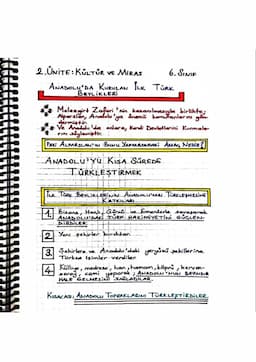 2. ÜNİTE: KÜLTÜR VE MİRAS 6. SINIF
ANADOLU'DA KURULAN İLK TÜRK
BEYLİKLERİ
Malazgirt Zaferi'nin kazanılmasıyla birlikte,
Alparslan, Anadolu'ya önemli komutanlarını gön
dermiştir.
Ve Anadolu'da onlara, Kendi Devletlerini Kurmala-
rını söylemiştir.
PEKİ ALPARSLAN'IN BUNU YAPMASINDAKİ AMAÇ NEDİR?
ANADOLU'YU KISA SÜREDE
TÜRKLEŞTİRMEK
İLK TÜRK BEYLİKLERİNİN ANADOLU'NUN TÜRKLEŞMESİNE
KATKILARI
1 Bizans, Haçlı, Gürcü ve Ermenilerle savaşarak
ANADOLU'DAKİ TÜRK HAKİMİYETİNİ GÜÇLEN-
DİRDİLER
2 Yeni şehirler kurdular.
3 Şehirlere ve Anadolu'daki yeryüzü şekillerine
Türkçe isimler verdiler
4 Külliye, medrese, han, hamam, köprü, kervan-
saray, cami yaparak, ANADOLU'NUN
HALE GELMESİNİ SAĞLADILAR.
KISACASI ANADOLU TOPRAKLARINI TÜRKLEŞTİRDİLER.